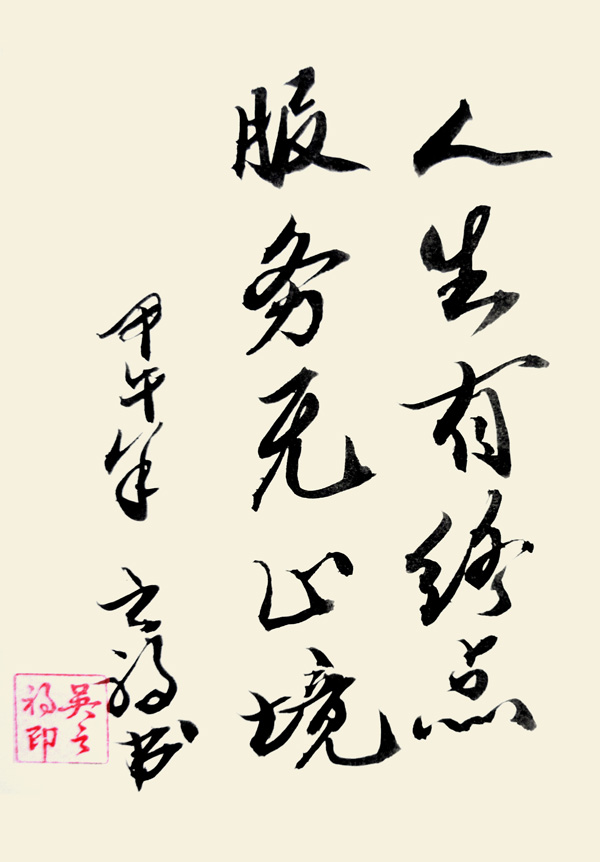 人生有终点
服务无止境
甲午年 云福书
吴云福印